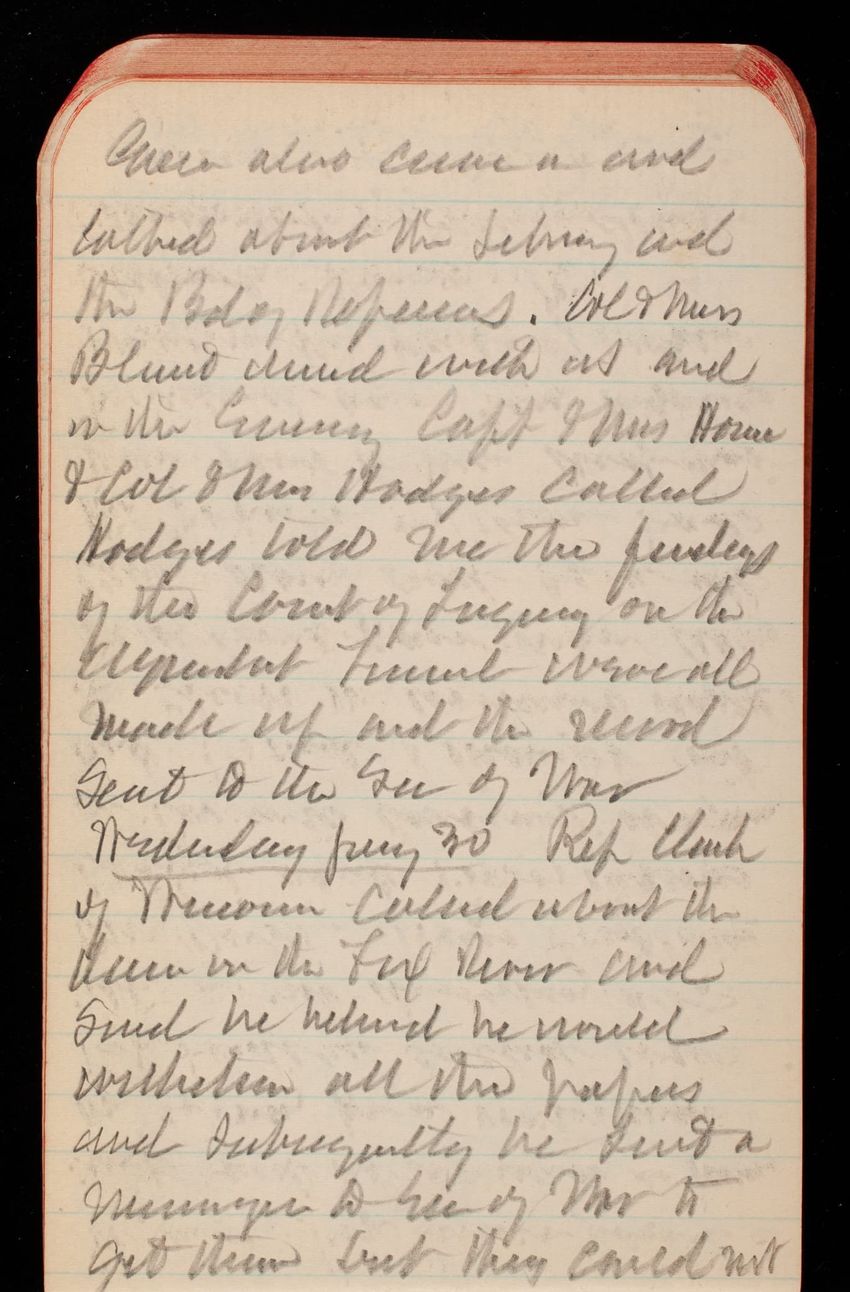 also came in and
talked about the library and
the Bd of . Col & Mrs
Blunt dined with us and
in the Evening Capt & Mrs
& Col & Mrs Hodges Called
Hodges told me the findings
of the Court of Inquiry on the
Aqueduct Tunnel were all
made up and the record
Sent to the Sec of War
Wednesday Jany 30 Rep Clark
of called about the
in the Fox River and
Said he believed he would
withdraw all the papers
and Subsequently he Sent a
messenger to Sec of War to
get them but they could not